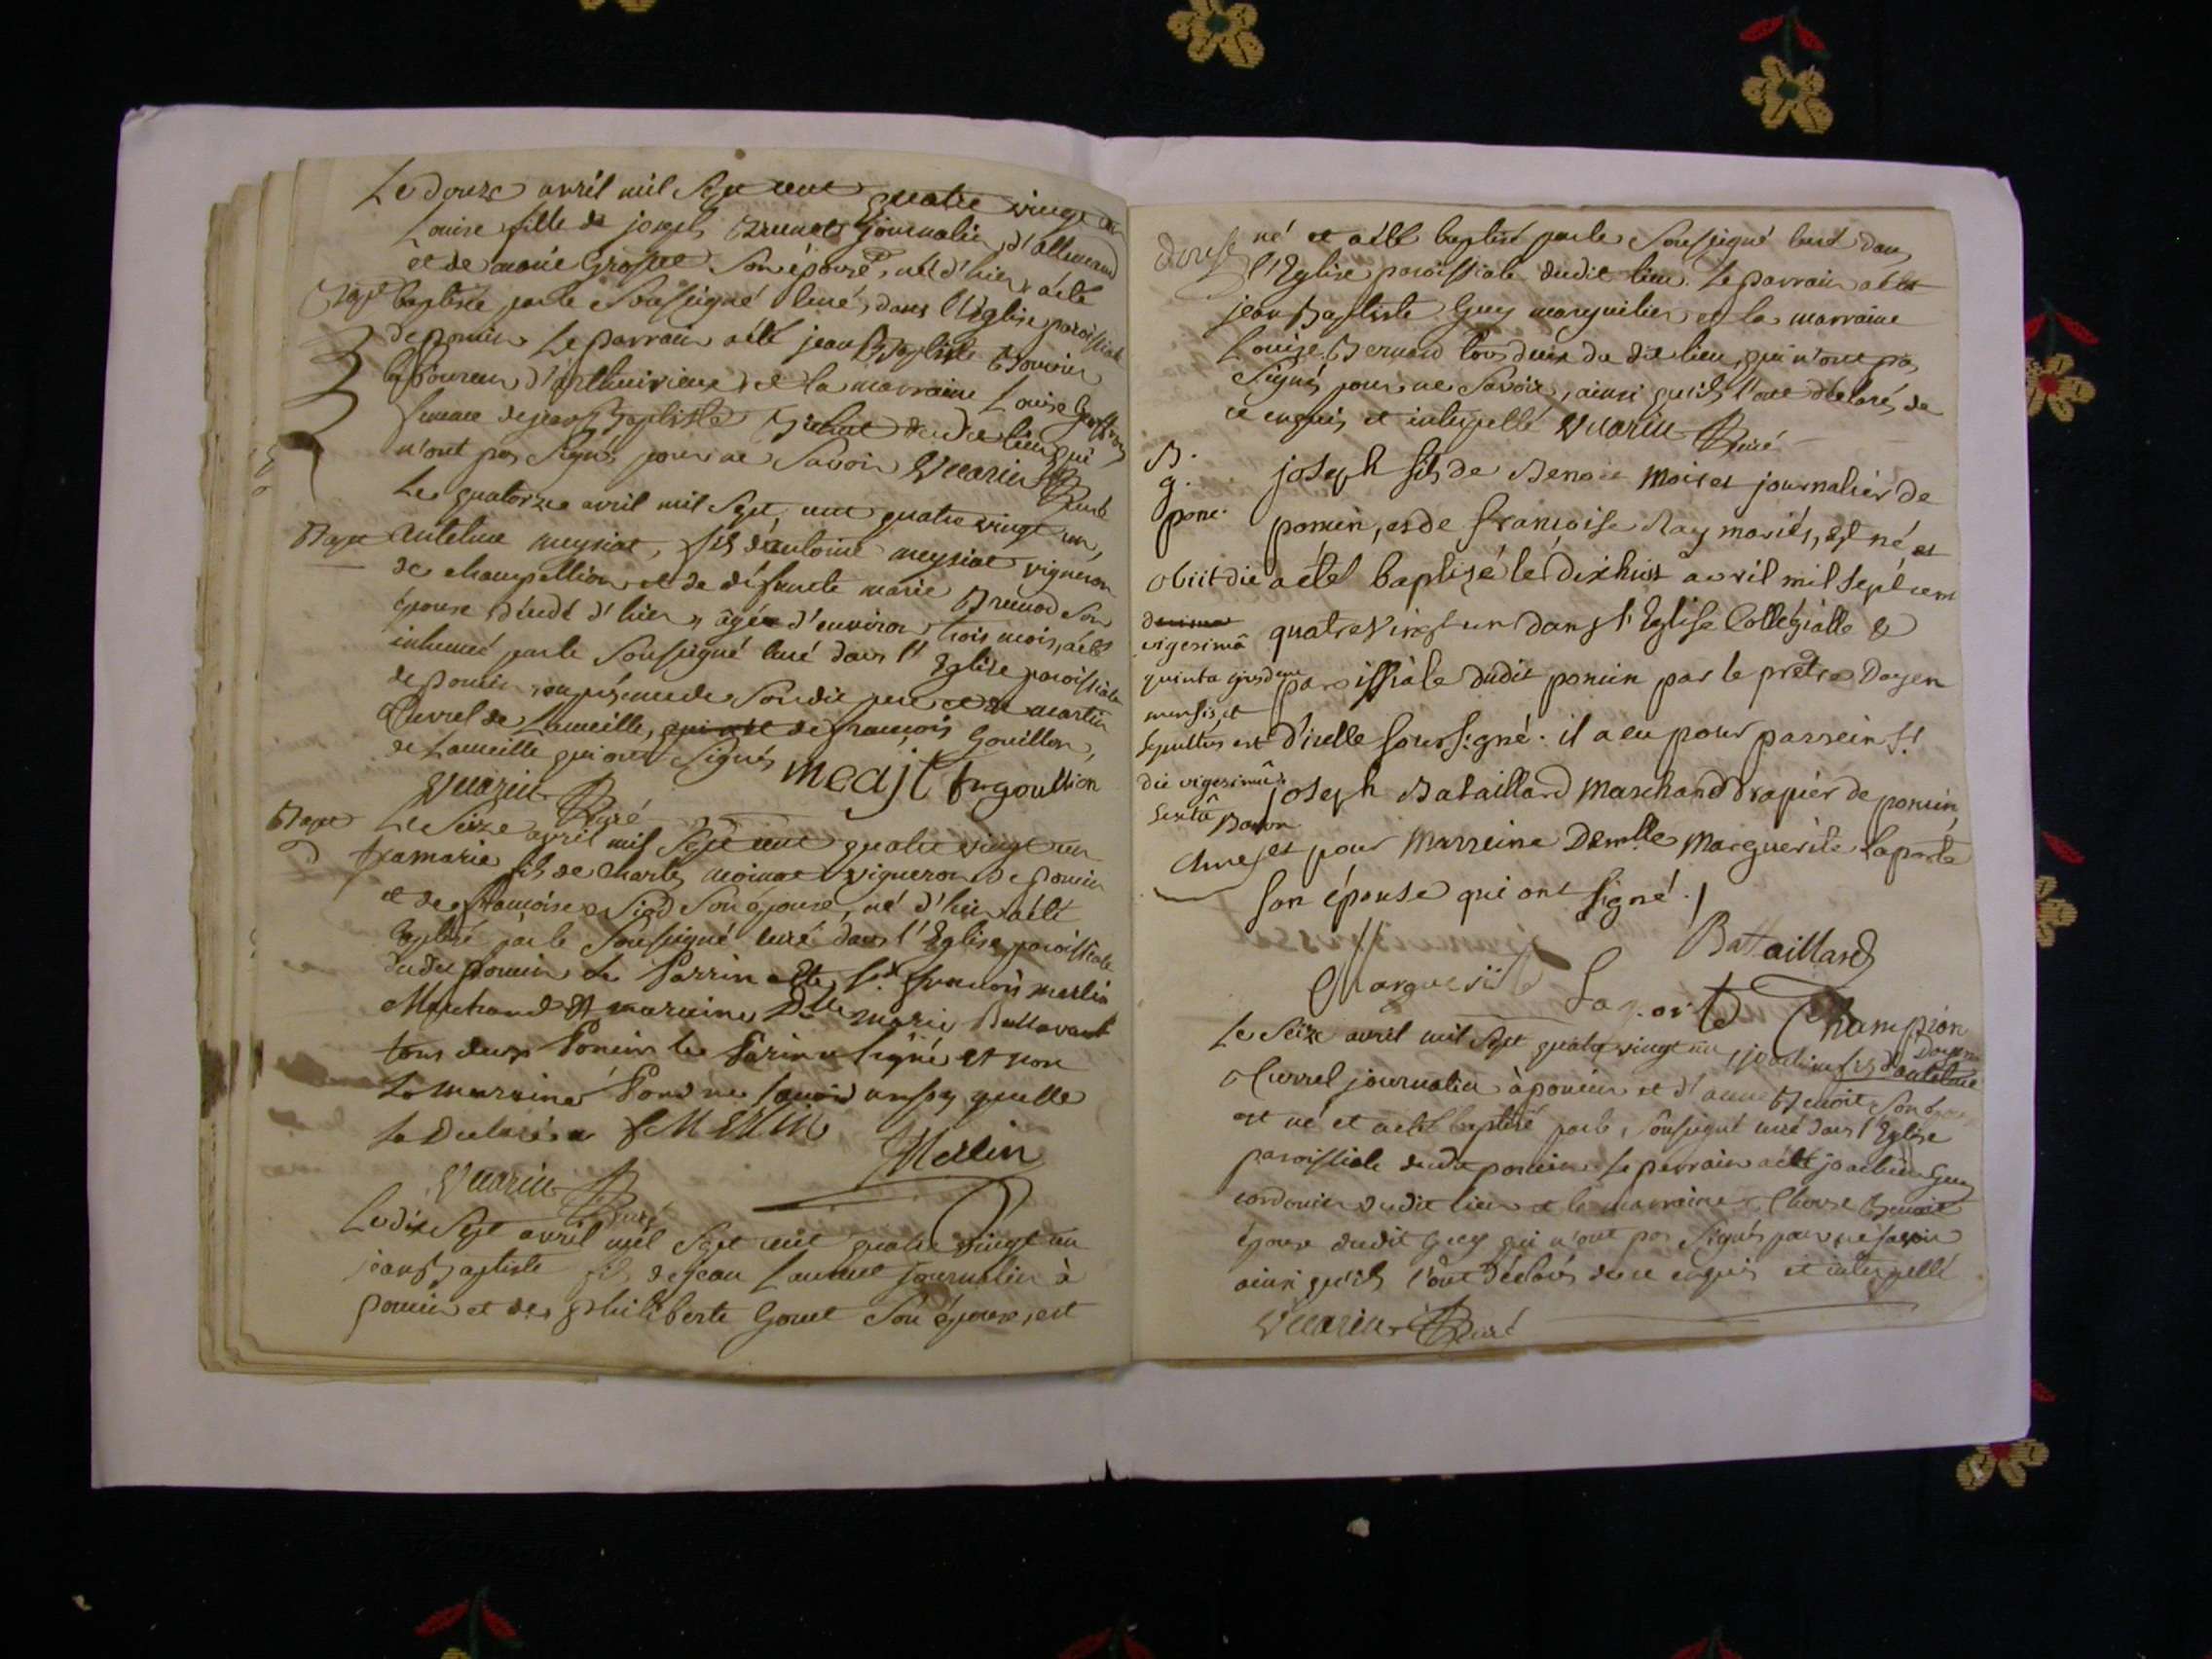 Le douze avril mil sept cent quatre vingt un
Louise fille de joseph Brunet journalier d'allemand
et de marie Grosset Son épouse, née d'hier, a été
Bapt baptisée par le Soussigné Curé, dans l'Eglise paroissiale
de poncin Le parrain a été jean Baptiste
laboureur d' et la marraine Louise
femme de jean Baptiste dudit lieu qui
n'ont pas Signés pour ne Savoir Vuarin Curé
Le quatorze avril mil Sept cent quatre vingt un,
Bapt Antelme meyniat, fils d'antoine meyniat vigneron
de champeillon et de défunte marie Brunod Son
épouse décédé d'hier, âgée d'environ trois mois, a été
inhumé par le Soussigné Curé dans l'Eglise paroissiale
de poncin, en présence de Sondit père et de martin
Curvel de Lameille, qui a été de françois Gouillon,
de Lameille qui ont Signés meajt frgoullion
Vuarin Curé
Bapt Le Seize avril mil Sept cent quatre vingt un
framarie fils de Charles moinat vigneron de poncin
et de françoise Sied Son épouse, né d'hier a été
baptisé par le Soussigné curé dans l'Eglise paroissiale
dudit poncin Le Parrin a été Sr. francois merlin
Marchand et maraine Dlle marie Buttavant
tous deux Poncin le Parin a signé et non
La marraine Pour ne savoir ansy quelle
la Declarée F MERLIN Merlin
Vuarin Curé
Le dix Sept avril mil Sept cent quatre vingt un
jean Baptiste fils de Jean Laurent journalier à
poncin et de philiberte Gonet Son épouse, est
né et a été baptisé par le Soussigné Curé dans
l'Eglise paroissiale dudit lieu. Le parrain a été
jean Baptiste Guy marguilier et la marraine
Louise Bernard tous deux du dit lieu, qui n'ont pas
Signés pour ne Savoir, ainsi qu'ils l'ont déclarés de
ce enquis et interpellé Vuarin Curé
B.
g.
ponc.
joseph fils de Benoit Moiret journalier de
poncin, et de françoise Ray mariés, est né et
a été baptisé le dixhuit avril mil Sept cent
quatrevingt un dans l'Eglise Collégialle &
paroissiàle dudit poncin par le prêtre Doyen
d'icelle soussigné. il a eu pour parrein Sr.
joseph Bataillard Marchand Drapier de poncin,
et pour Marreine Demlle Marguerite Laporte
son épouse qui ont signé./
obiit die
decima
vigesimâ
quinta ejusdem
mensis, et
sepultus est
die vigesimâ
sextâ
Bataillard
Marguerite Laporte Champion
Doyen
Le Seize avril mil Sept quatre vingt un, joachim fils d'antelme
Curvel journalier à poncin et d'anne Benoit Son épouse
est né et a été baptisé par le Soussigné curé dans l'Eglise
paroissiale dudit poncin Le parrain a été joachim Guy
cordonier dudit lieu et la marraine Benoit
épouse dudit Guy qui n'ont pas Signés pour ne Savoir
ainsi qu'ils l'ont déclarés de ce enquis et interpellé
Vuarin Curé